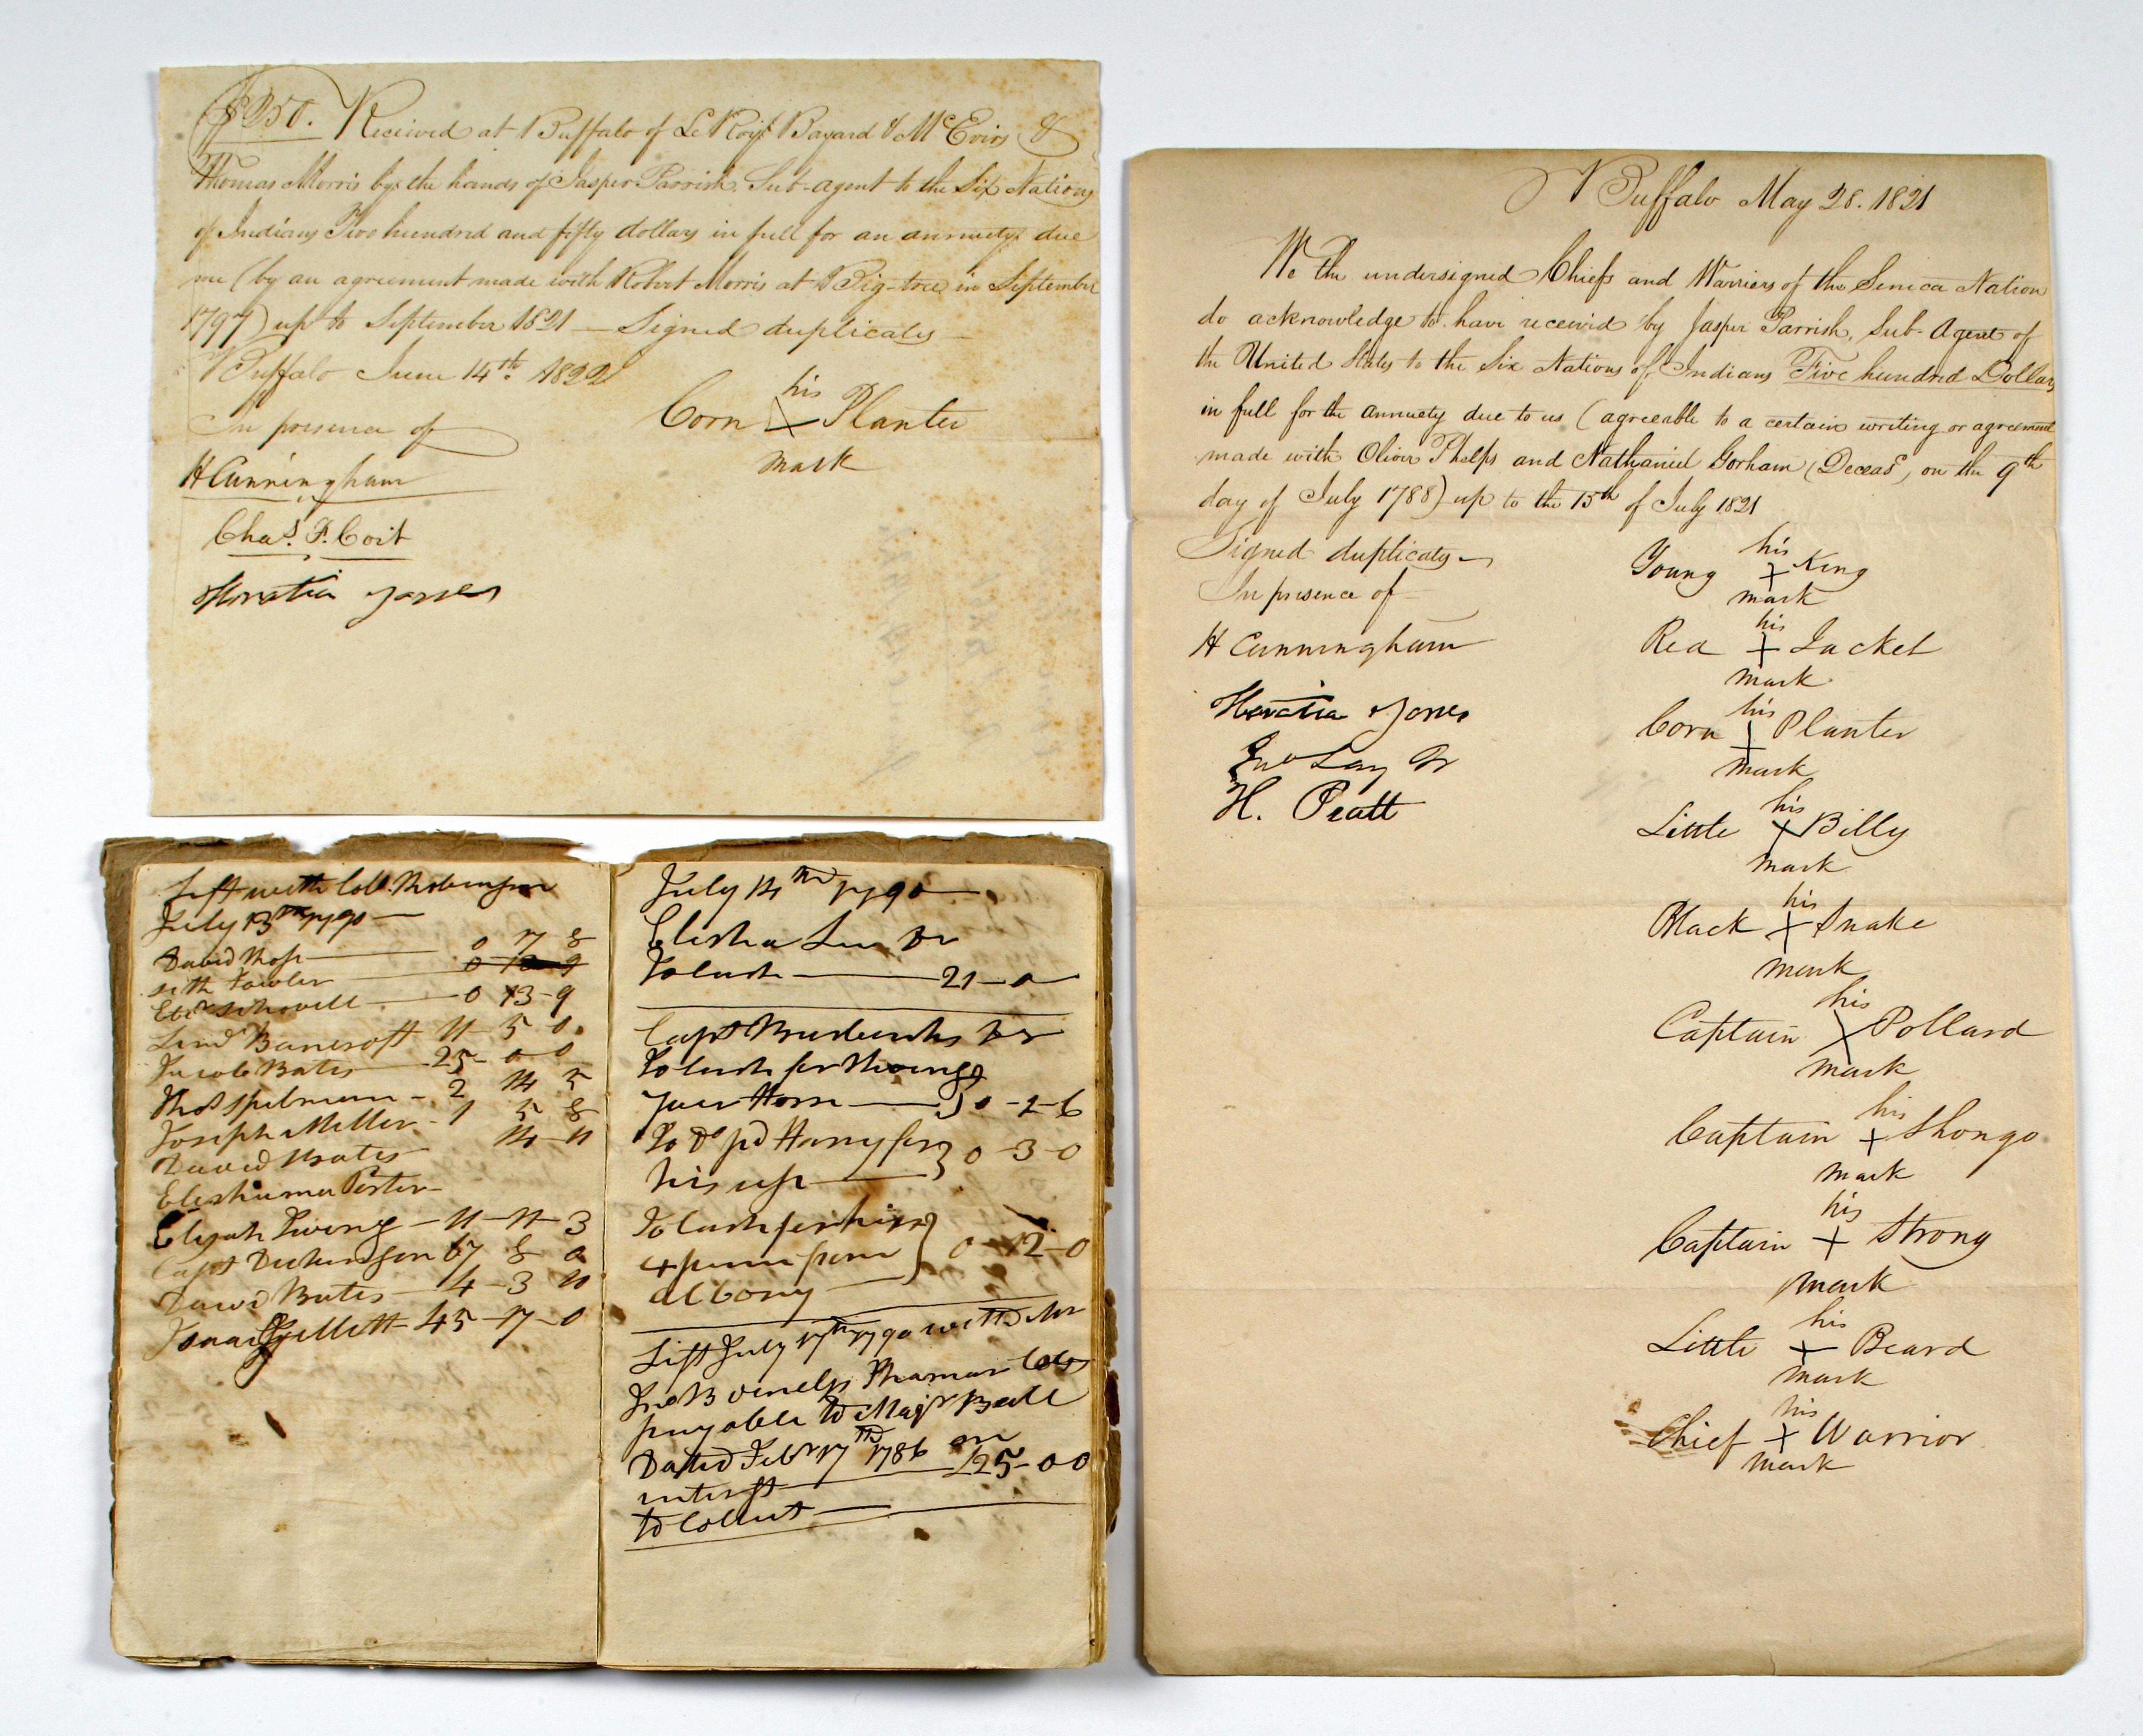 $250. Received at Buffalo of Le Roy, Bayard & McEvirs &
Thomas Morris by the hands of Jasper Parrish, Sub-agent to the Six Nations
of Indians Two hundred and fifty dollars in full for an annuity due
me (by an agreement made with Robert Morris at Big-tree in September
1797) up to September 1821 — Signed duplicates —
Buffalo June 14th. 1822
In presence of
his
Corn X Planter
mark
H Cunningham
Chas. F. Coit
Horatio Jones
Buffalo May 28. 1821
We the undersigned Chiefs and Warriors of the Seneca Nation
do acknowledge to have received by Jasper Parrish, Sub-Agent of
the United States to the Six Nations of Indians Five hundred Dollars
in full for the annuety due to us (agreeable to a certain writing or agreement
made with Oliver Phelps and Nathaniel Gorham (Deceasd, on the 9th
day of July 1788) up to the 15th of July 1821
Signed duplicates —
In presence of —
H Cunningham
Horatio Jones
Jno Lay Jr
H. Pratt
his
Young X King
mark
his
Red X Jacket
mark
his
Corn X Planter
mark
his
Little X Billy
mark
his
Black X Snake
mark
his
Captain X Pollard
mark
his
Captain X Shongo
mark
his
Captain X Strong
mark
his
Little X Beard
mark
his
Chief X Warrior
mark
Left with Coll. Robinson
July 13th 1790 —
David Ross — 0 7 8
Seth Fowler — 0
— 0 13 - 9
Bancroft 11 - 5 - 0
Jacob Bates — 25 - 0 0
Thos Spelman — 2 14 5
Joseph Miller - 1 5 8
David Bates 14 - 11
Elishama Porter -
Elijah — 11 - 11 - 3
Capt Dickinson 67 8 0
David Bates — 4 - 3 11
Gillett - 45 - 17 - 0
July 14th 1790 —
Elisha Lee Dr
To Cash — 21 - 0
Capt Dr
To Cash for Shoeing
your Horse — 0 - 2 - 6
To Do pd Harry for
his up — 0 - 3 - 0
To Cash for his
from
Albany — 0 - 12 - 0
Left July 17th 1790 with Mr
Jno
payable to Majr Ball
Dated Febr 17th 1786 on
interst — £25 - 0 0
to Collect —